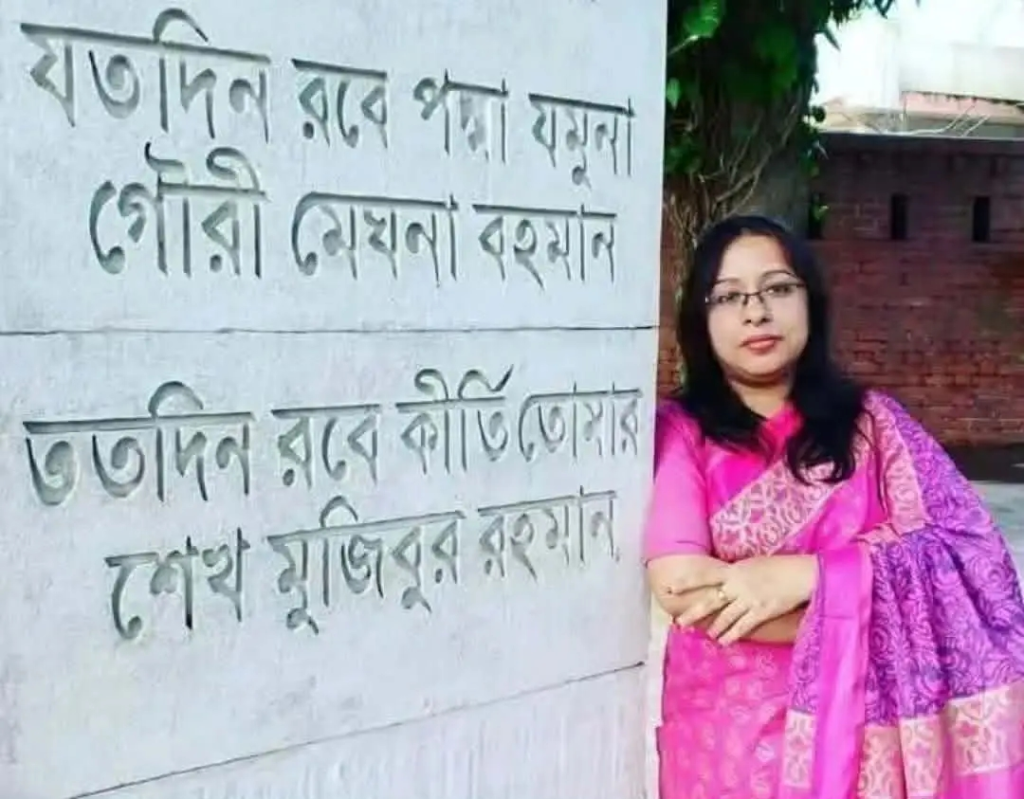 যতদিন রবে পদ্মা যমুনা
গৌরী মেঘনা বহমান
ততদিন রবে কীর্তি তোমার
শেখ মুজিবুর রহমান